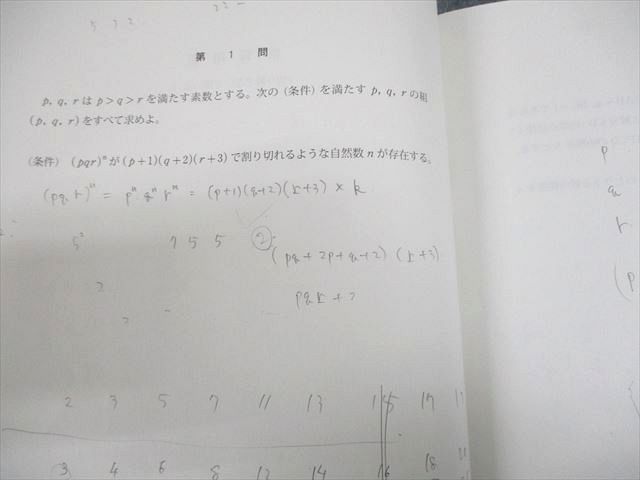 5 3 2
第 1 問
p, q, r は p > q > r を満たす素数とする。次の (条件) を満たす p, q, r の組
(p, q, r) をすべて求めよ。
(条件) (pqr)ⁿ が (p+1)(q+2)(r+3) で割り切れるような自然数 n が存在する。
(pq r)ⁿ = pⁿ qⁿ rⁿ = (p+1)(q+2)(r+3) × k
5² 7 5 5 ②
(pq + 2p + q + 2) (r+3)
2
pqr + 2
2 3 5 7 11 13 15 17
3 4 6 8 12 14 16 18
p
q
r
(p